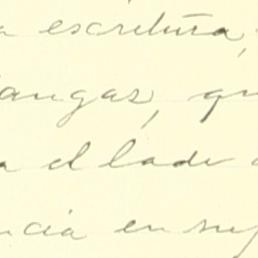 a escritura,
angas, qu
a el lado
ncia en su